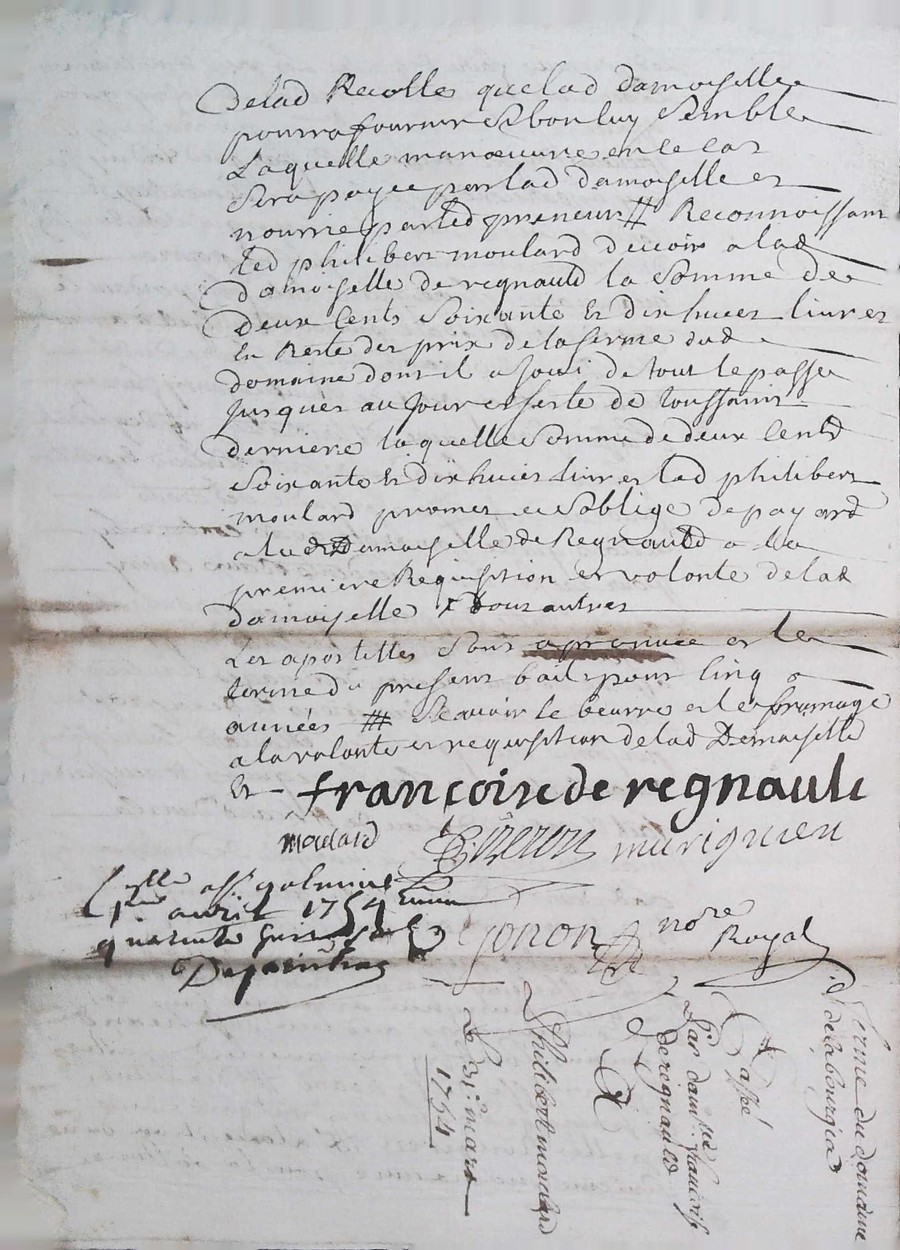 delad Recolles quelad damoiselle
pourra fournir Sy bon luy Semble
Laquelle manœuvre en le cas
Sera payée par lad damoiselle et
nourrie par led preneur # Reconnoissant
led philibert moulard devoir a lad
damoiselle de regnauld la Somme de
deux Cents Soixante Et dix huict livres
En Reste des prix de la ferme dud
domaine dont il a Joui de tout le passé
Jusques au Jour et feste de toussaint
derniere laquelle Somme de deux Cents
Soixante Et dix huict livres led philibert
moulard promet et Soblige de payer
a lad Damoiselle de Regnauld a la
premiere Requisition et volonté de lad
damoiselle
Les apostilles Sont et le
terme du present bail pour Cinq
années # Scavoir le beurre et le fromage
a la volonte et requisition de lad Demoiselle
Et - françoise de regnauld
moulard
avril 1754
gonon nore
Royal
ferme du domaine
de la bourgia
Passé
Par dam.lle francoise
de regnauld
Philibert moulard
Le 31e mars
1754